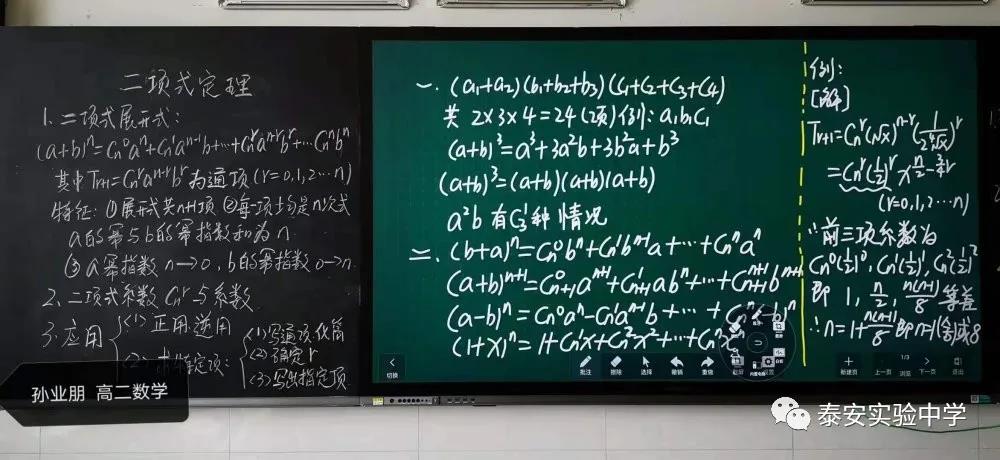 二项式定理
1. 二项式展开式:
(a+b)ⁿ=Cn⁰aⁿ+Cn¹aⁿ⁻¹b+…+Cnʳaⁿ⁻ʳbʳ+…Cnⁿbⁿ
其中Tr+1=Cnʳaⁿ⁻ʳbʳ为通项(r=0,1,2…n)
特征:①展开式共n+1项 ②每一项均是n次式
a的幂与b的幂指数和为n
③a幂指数n→0,b的幂指数0→n
2、二项式系数Cnʳ与系数
3.应用
<1>正用、逆用
<2>求特定项:
(1)写通项、化简
(2)确定r
(3)写出指定项
一.(a₁+a₂)(b₁+b₂+b₃)(C₁+C₂+C₃+C₄)
共2×3×4=24(项)例:a₁b₁C₁
(a+b)³=a³+3a²b+3b²a+b³
(a+b)³=(a+b)(a+b)(a+b)
a²b有C₃¹种情况
二=(b+a)ⁿ=Cn⁰bⁿ+Cn¹bⁿ⁻¹a+…+Cnⁿaⁿ
(a+b)ⁿ⁺¹=C⁰n+1aⁿ⁺¹+C¹n+1abⁿ+…+Cⁿ⁺¹n+1bⁿ⁺¹
(a-b)ⁿ=Cn⁰aⁿ-Cn¹aⁿ⁻¹b+…+Cnⁿ(-b)ⁿ
(1+x)ⁿ=1+Cn¹x+Cn²x²+…+Cnⁿxⁿ
例:
[解]
Tr+1=Cnʳ(√x)ⁿ⁻ʳ(1/2⁴√x)ʳ
=Cnʳ(½)ʳx^(n/2-¾r)
(r=0,1,2…n)
∵前三项系数为
Cn⁰(½)⁰,Cn¹(½)¹,Cn²(½)²
即1,n/2,n(n-1)/8等差
∴n=1+n(n-1)/8即n=1(舍)或8
切换
批注
擦除
选择
撤销
重做
新建页
上一页
1/3
浏览
下一页
退出
孙业朋 高二数学
泰安实验中学